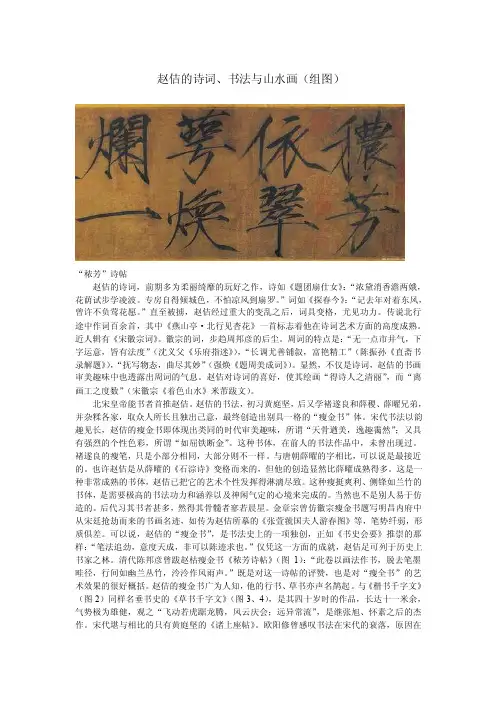 赵佶的诗词、书法与山水画（组图）
穠芳
依翠
萼煥
爛一
“秾芳”诗帖
赵佶的诗词，前期多为柔丽绮靡的玩好之作，诗如《题团扇仕女》：“浓黛消香澹两娥，
花荫试步学凌波。专房自得倾城色，不怕凉风到扇罗。”词如《探春令》：“记去年对着东风，
曾许不负莺花愿。”直至被掳，赵佶经过重大的变乱之后，词具变格，尤见功力。传说北行
途中作词百余首，其中《燕山亭·北行见杏花》一首标志着他在诗词艺术方面的高度成熟。
近人辑有《宋徽宗词》。徽宗的词，步趋周邦彦的后尘。周词的特点是：“无一点市井气，下
字运意，皆有法度”（沈义父《乐府指迷》），“长调尤善铺叙，富艳精工”（陈振孙《直斋书
录解题》），“抚写物态，曲尽其妙”（强焕《题周美成词》）。显然，不仅是诗词，赵佶的书画
审美趣味中也透露出周词的气息。赵佶对诗词的喜好，使其绘画“得诗人之清丽”，而“离
画工之度数”（宋徽宗《着色山水》米芾跋文）。
北宋皇帝能书者首推赵佶。赵佶的书法，初习黄庭坚，后又学褚遂良和薛稷、薛曜兄弟，
并杂糅各家，取众人所长且独出己意，最终创造出别具一格的“瘦金书”体。宋代书法以韵
趣见长，赵佶的瘦金书即体现出类同的时代审美趣味，所谓“天骨遒美，逸趣霭然”；又具
有强烈的个性色彩，所谓“如屈铁断金”。这种书体，在前人的书法作品中，未曾出现过。
褚遂良的瘦笔，只是小部分相同，大部分则不一样。与唐朝薛曜的字相比，可以说是最接近
的。也许赵佶是从薛曜的《石淙诗》变格而来的，但他的创造显然比薛曜成熟得多。这是一
种非常成熟的书体，赵佶已把它的艺术个性发挥得淋漓尽致。这种瘦挺爽利、侧锋如兰竹的
书体，是需要极高的书法功力和涵养以及神闲气定的心境来完成的。当然也不是别人易于仿
造的。后代习其书者甚多，然得其骨髓者寥若晨星。金章宗曾仿徽宗瘦金书题写明昌内府中
从宋廷抢劫而来的书画名迹，如传为赵佶所摹的《张萱虢国夫人游春图》等，笔势纤弱，形
质俱差。可以说，赵佶的“瘦金书”，是书法史上的一项独创，正如《书史会要》推崇的那
样：“笔法追劲，意度天成，非可以陈迹求也。”仅凭这一方面的成就，赵佶足可列于历史上
书家之林。清代陈邦彦曾跋赵桔瘦金书《秾芳诗帖》（图1）：“此卷以画法作书，脱去笔墨
畦径，行间如幽兰丛竹，泠泠作风雨声。”既是对这一诗帖的评赞，也是对“瘦金书”的艺
术效果的很好概括。赵佶的瘦金书广为人知，他的行书、草书亦声名鹊起。与《楷书千字文》
（图2）同样名垂书史的《草书千字文》（图3、4），是其四十岁时的作品，长达十一米余。
气势极为雄健，观之“飞动若虎踞龙腾，风云庆会；远异常流”，是继张旭、怀素之后的杰
作。宋代堪与相比的只有黄庭坚的《诸上座帖》。欧阳修曾感叹书法在宋代的衰落，原因在